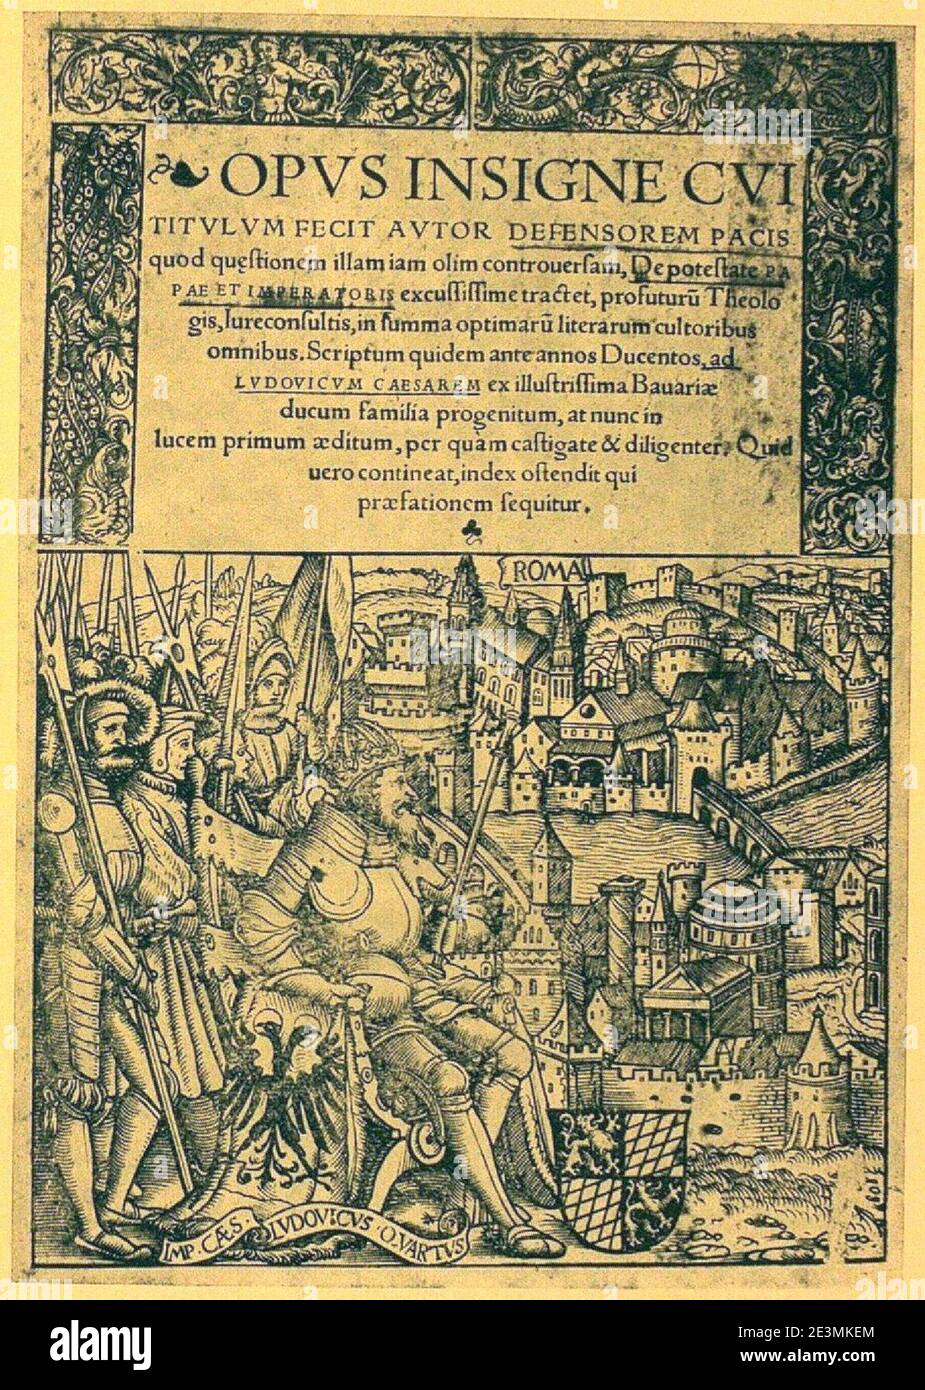 OPVS INSIGNE CVI
TITVLVM FECIT AVTOR DEFENSOREM PACIS
quod quęstionem illam iam olim controuersam, De potestate PA
PAE ET IMPERATORIS excussissime tractet, profuturū Theolo
gis, Iureconsultis, in summa optimarū literarum cultoribus
omnibus. Scriptum quidem ante annos Ducentos, ad
LVDOVICVM CAESAREM ex illustrissima Bauariæ
ducum familia progenitum, at nunc in
lucem primum æditum, per quàm castigate & diligenter. Quid
uero contineat, index ostendit qui
præfationem sequitur.
ROMA
IMP. CÆS. LVDOVICVS QVARTVS
alamy
Image ID: 2E3MKEM
www.alamy.com